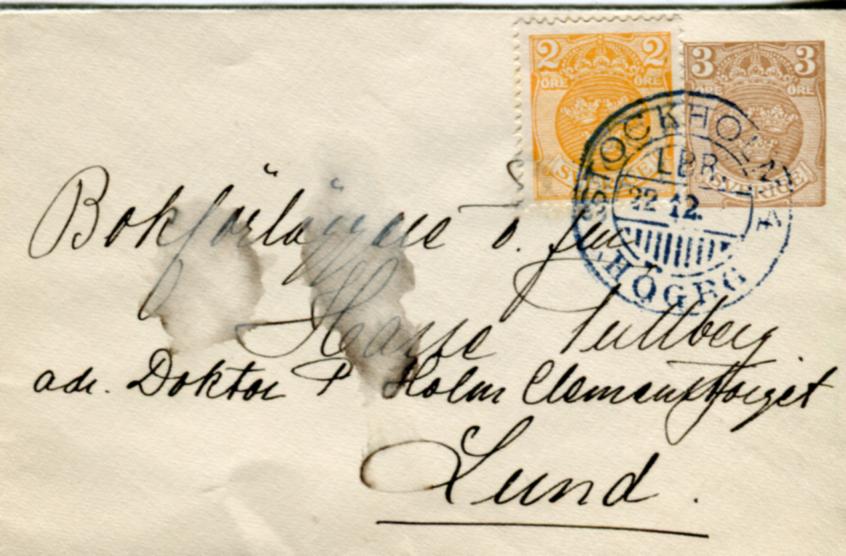 2 2
ÖRE ÖRE
3 3
ÖRE ÖRE
SVERIGE
STOCKHOLM
LBR.
22 12.
HÖGRG
Bokförläggare o. fru
Hasse Tullberg
adr. Doktor P Holm Clemenstorget
Lund.